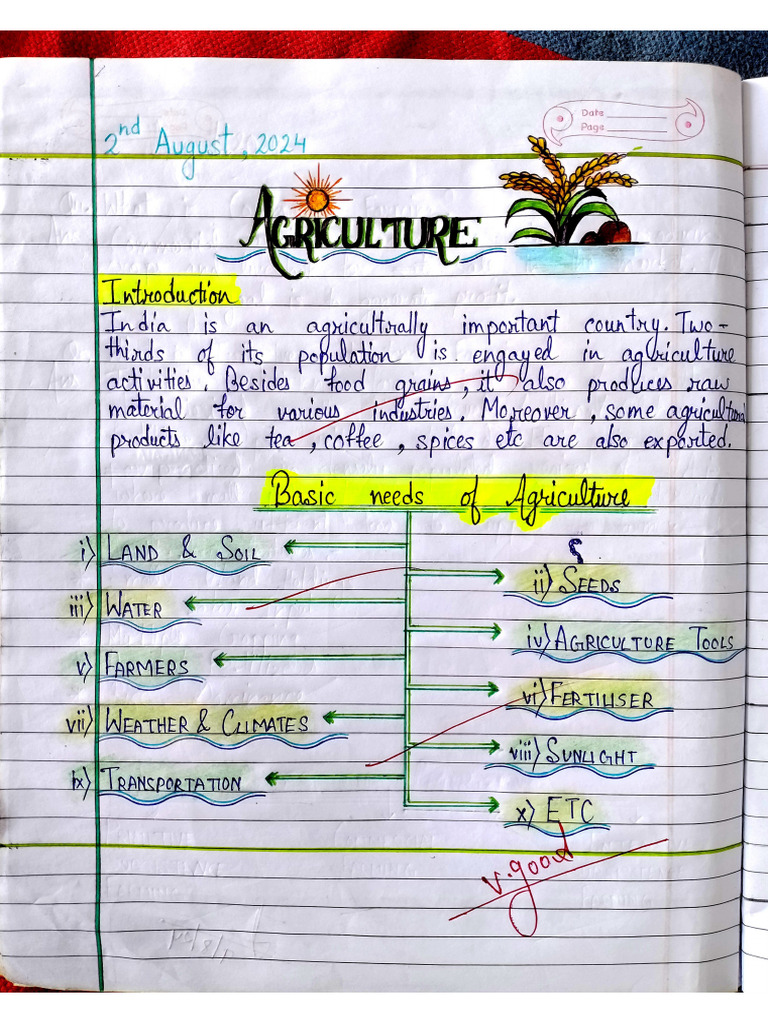 Date
Page
2nd August, 2024
AGRICULTURE
Introduction
India is an agricultrally important country. Two-
thirds of its population is engayed in agluriculture
activities. Besides food grains, it also produces raw
material for various industries. Moreover, some agricultural
products like tea, coffee, spices etc are also exported.
Basic needs of Agriculture
i) LAND & SOIL
ii) SEEDS
iii) WATER
iv) AGRICULTURE TOOLS
v) FARMERS
vi) FERTILISER
vii) WEATHER & CLIMATES
viii) SUNLIGHT
ix) TRANSPORTATION
x) ETC
v.good